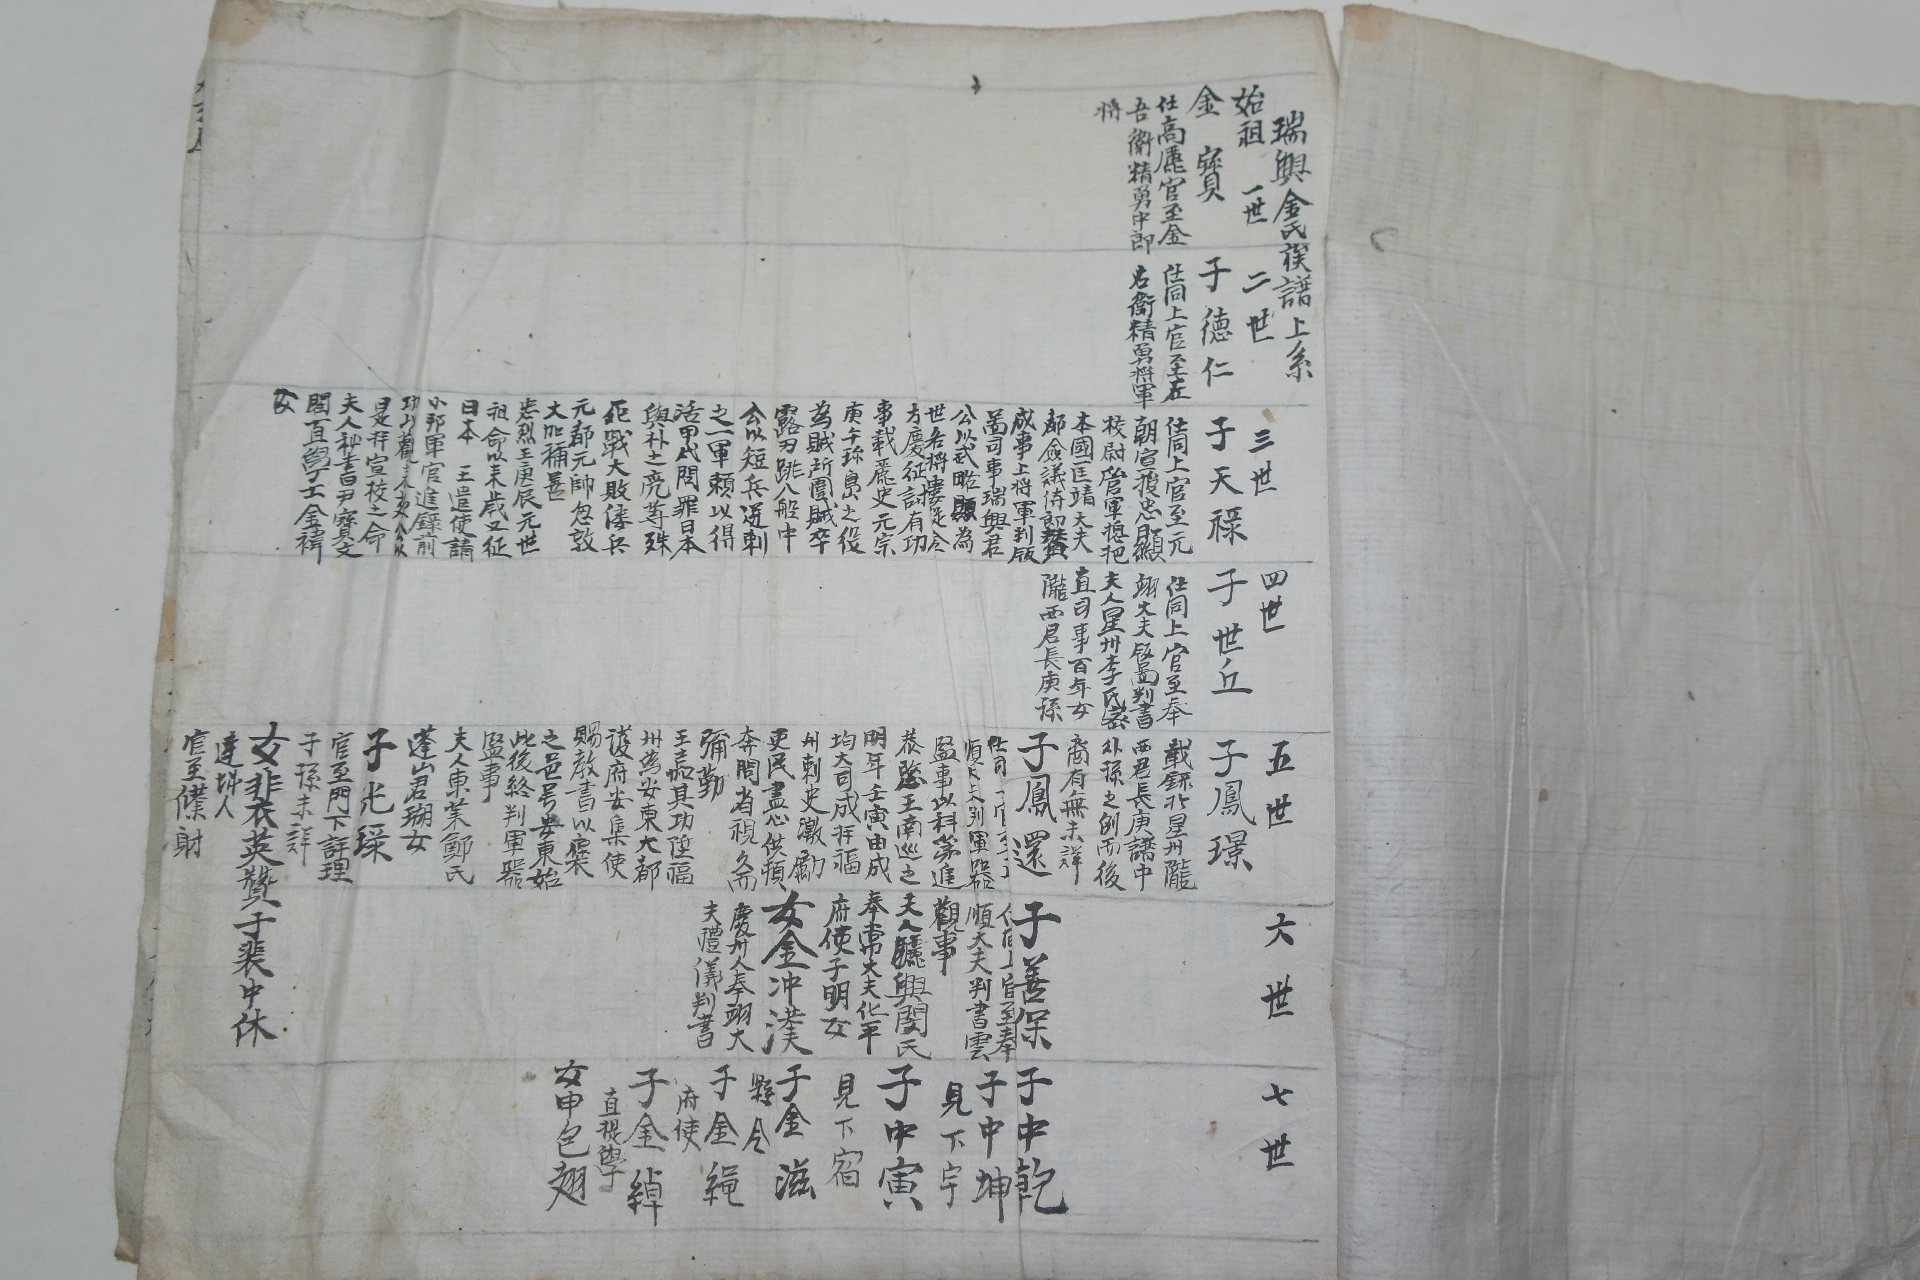 瑞興金氏族譜上系
始祖 一世
金寶
仕高麗官至金
吾衛精勇中郎
將
二世
子德仁
仕同上官至左
右衛精勇將軍
三世
子天祿
仕同上官至元
朝宣授忠顯
校尉管軍摠把
本國匡靖大夫
都僉議侍郎贊
成事上將軍判版
啚司事瑞興君
公以武略顯為
世名將摟從金
方慶征討有功
事載麗史元宗
庚午珎島之役
為賊所圍賊卒
露刃跳入船中
公以短兵逆刺
之一軍賴以得
活甲戌問罪日本
與朴之亮等殊
死戰大敗倭兵
元都元帥忽敦
大加補善
忠烈王庚辰元世
祖命以未歲又征
日本 王遣使請
小邦軍官進錄前
功
是拜宣校之命
夫人秘書尹寶文
閣直學士金禕
女
四世
子世丘
仕同上官至奉
翊大夫版啚判書
夫人星州李氏密
直司事百年女
隴西君長庚孫
五世
子鳳璟
載錄於星州隴
西君長庚譜中
外孫之例而後
裔有無未詳
子鳳還
順大夫判軍器
監事以科第進
恭愍王南巡之
明年壬寅由成
均大司成拜福
州刺史激勵
吏民盡心供頓
奔問省視久而
彌勤
王嘉其功陞福
州為安東大都
護府安集使
賜教書以褒
之邑号安東始
此後終判軍器
監事
夫人東萊鄭氏
蓬山君瑚女
子光琛
官至門下評理
子孫未詳
女裴英贊子裴中休
達城人
官至僕射
六世
子善保
仕同上官至奉
順大夫判書雲
觀事
夫人驪興閔氏
奉常大夫化平
府使子明女
女金冲漢
慶州人奉翊大
夫禮儀判書
七世
子中乾
子中坤
見下宇
子中寅
見下宿
子金滋
縣令
子金繩
府使
子金綽
直提學
女申包翅